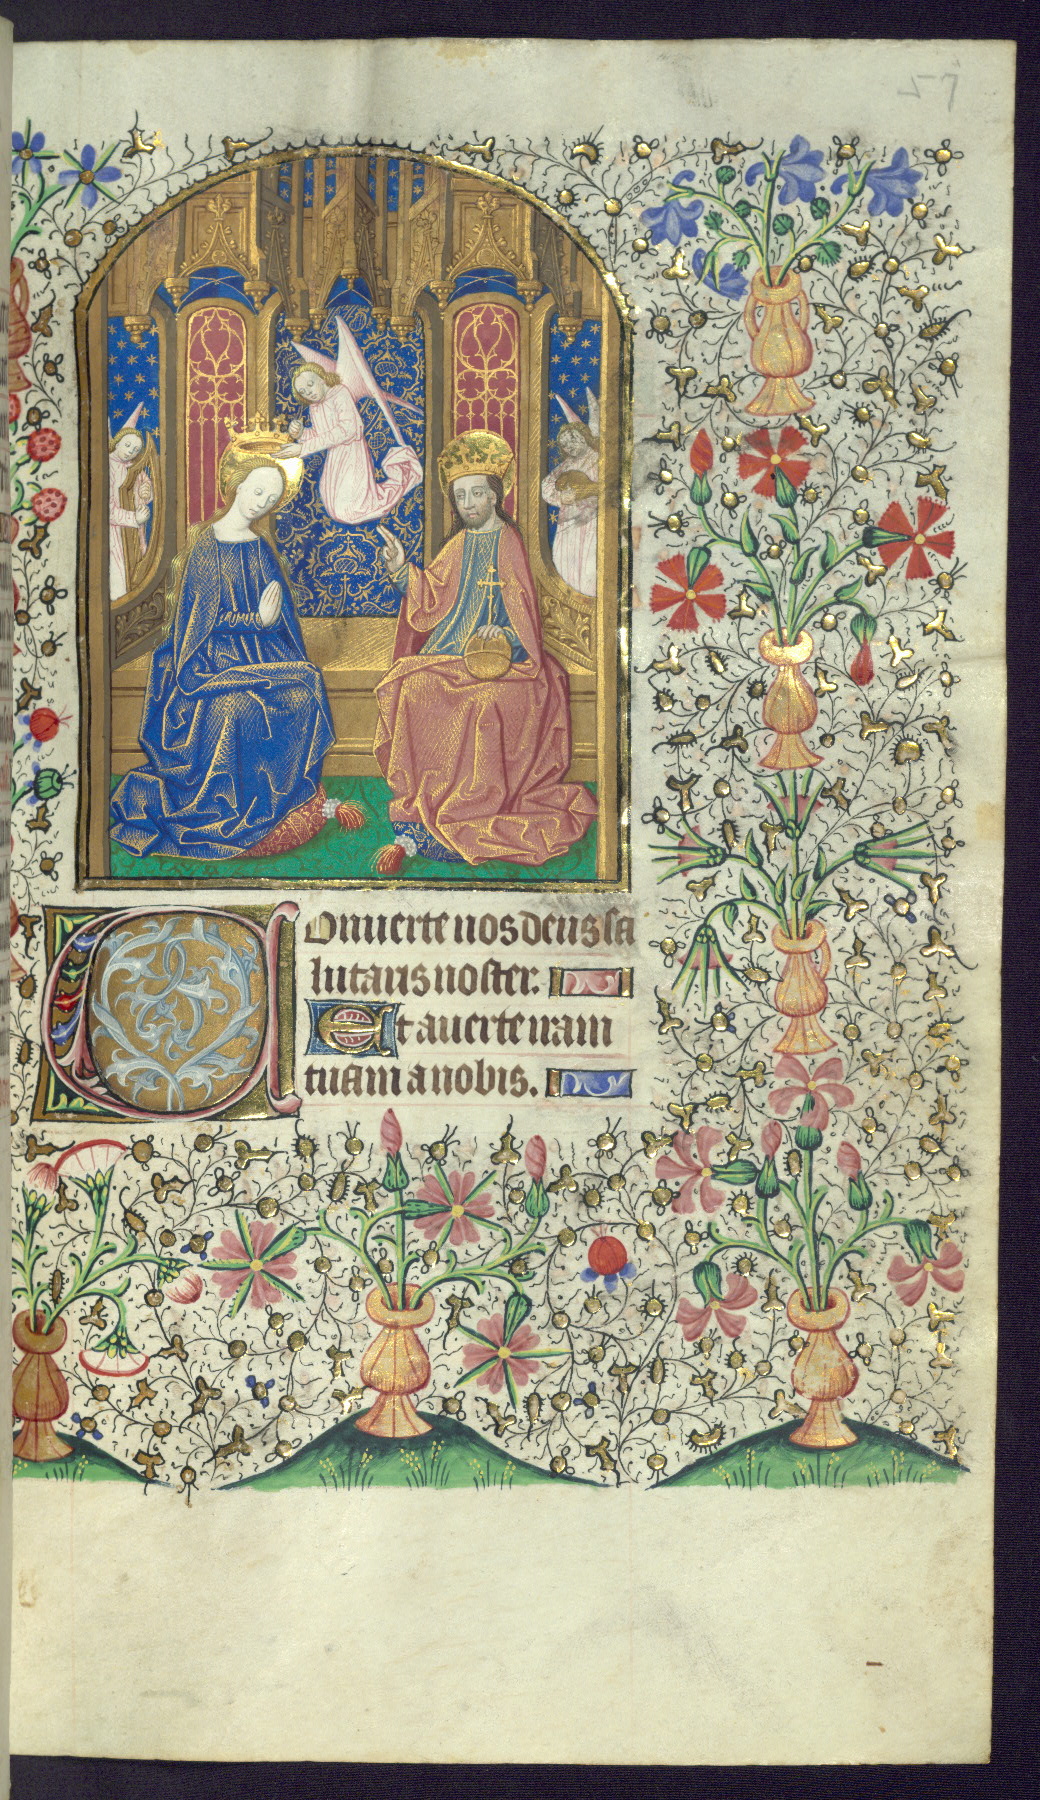 57
Conuerte nos deus sa
lutaris noster.
Et auerte iram
tuam a nobis.